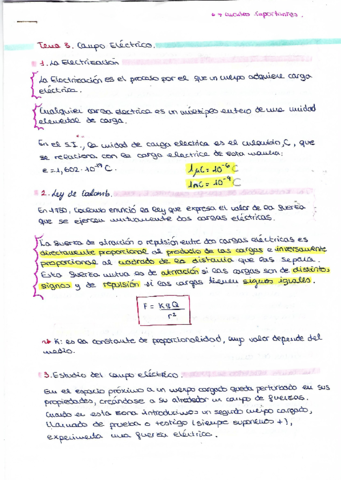 Tema 3. Campo Eléctrico.
1. La Electrización
La Electrización es el proceso por el que un cuerpo adquiere carga
eléctrica.
Cualquier carga eléctrica es un múltiplo entero de una unidad
elemental de carga.
En el S.I., la unidad de carga eléctrica es el culombio, C, que
se relaciona con la carga electrica de esta manera:
e = 1,602 · 10⁻¹⁹ C.
1μC = 10⁻⁶ C
1nC = 10⁻⁹ C
2. Ley de Coulomb.
En Coulomb enunció la ley que expresa el valor de la fuerza
que se ejercen mutuamente dos cargas eléctricas.
La fuerza de atracción o repulsión entre dos cargas eléctricas es
directamente proporcional al producto de las cargas e inversamente
proporcional al cuadrado de la distancia que las separa.
Esta fuerza mutua es de atracción si las cargas son de distinto
signo y de repulsión si las cargas tienen signos iguales.
F = K q Q
r²
K: es la constante de proporcionalidad, cuyo valor depende del
medio.
3. Estudio del campo eléctrico.
En el espacio próximo a un cuerpo cargado queda perturbado en sus
propiedades, creándose a su alrededor un campo de fuerzas.
Cuando en esta zona introducimos un segundo cuerpo cargado,
llamado de prueba o testigo (siempre suponemos +),
experimenta una fuerza eléctrica.